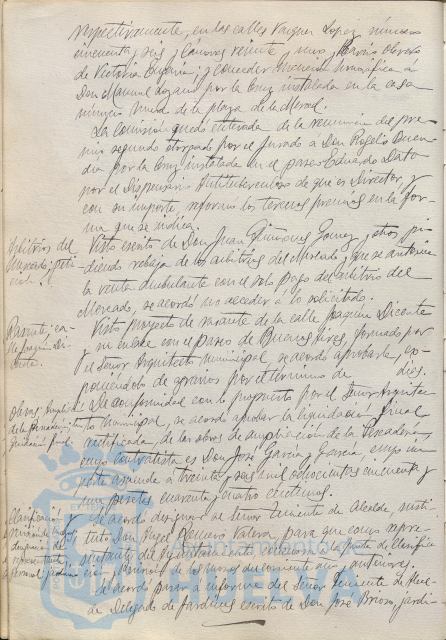 respectivamente, en las calles Vazquez Lopez, número
cincuenta y seis y Cánovas veinte y uno, y Barrio Obrero
de Victoria Eugenia; y conceder mención honorífica á
Don Manuel Lozano por la Cruz instalada en la casa
número nueve de la plaza de la Merced.
La Comisión quedó enterada de la renuncia del pre-
mio segundo otorgado por el Jurado a Don Rogelio Buen-
día por la Cruz instalada en el paseo Eduardo Dato
por el Dispensario Antituberculoso de que es Director, y
con su importe, reforzar los terceros premios en la for-
ma que se indica.
Arbitrios del
Mercado: peti-
ción.
Visto escrito de Don Juan Quiñones Gomez y otros pi-
diendo rebaja de los arbitrios del Mercado y que se autorice
la venta ambulante con el solo pago del arbitrio del
Mercado, se acordó no acceder a lo solicitado.
Rasante, ca-
lle Joaquín Di-
cente.
Visto proyecto de rasante de la calle Joaquin Dicente
y su enlace con el paseo de Buenos Aires, formado por
el Señor Arquitecto Municipal, se acordó aprobarle, ex-
poniéndolo de agravios por el término de dias.
Obras, ampliación
de la Pescadería, li-
quidación final
De conformidad con lo propuesto por el Señor Arquitec-
to Municipal, se acordó aprobar la liquidación final
rectificada, de las obras de ampliación de la Pescadería,
cuyo contratista es Don José García y García, cuyo im-
porte asciende a treinta y seis mil ochocientas cincuenta y
una pesetas cuarenta y cuatro céntimos.
Clasificación y
Se acordó designar al Señor Teniente de Alcalde, susti-
tuto Don Angel Romero Valera, para que como repre-
sentante del Ayuntamiento concurra a la Junta de Clasifica-
ción y Revisión de los mozos del corriente año y anteriores.
Personal, jardinero
Se acordó pasar a informe del Señor Teniente de Alcal-
de Delegado de Jardines escrito de Don José Brioso, jardi-
Ayuntamiento de
HUELVA